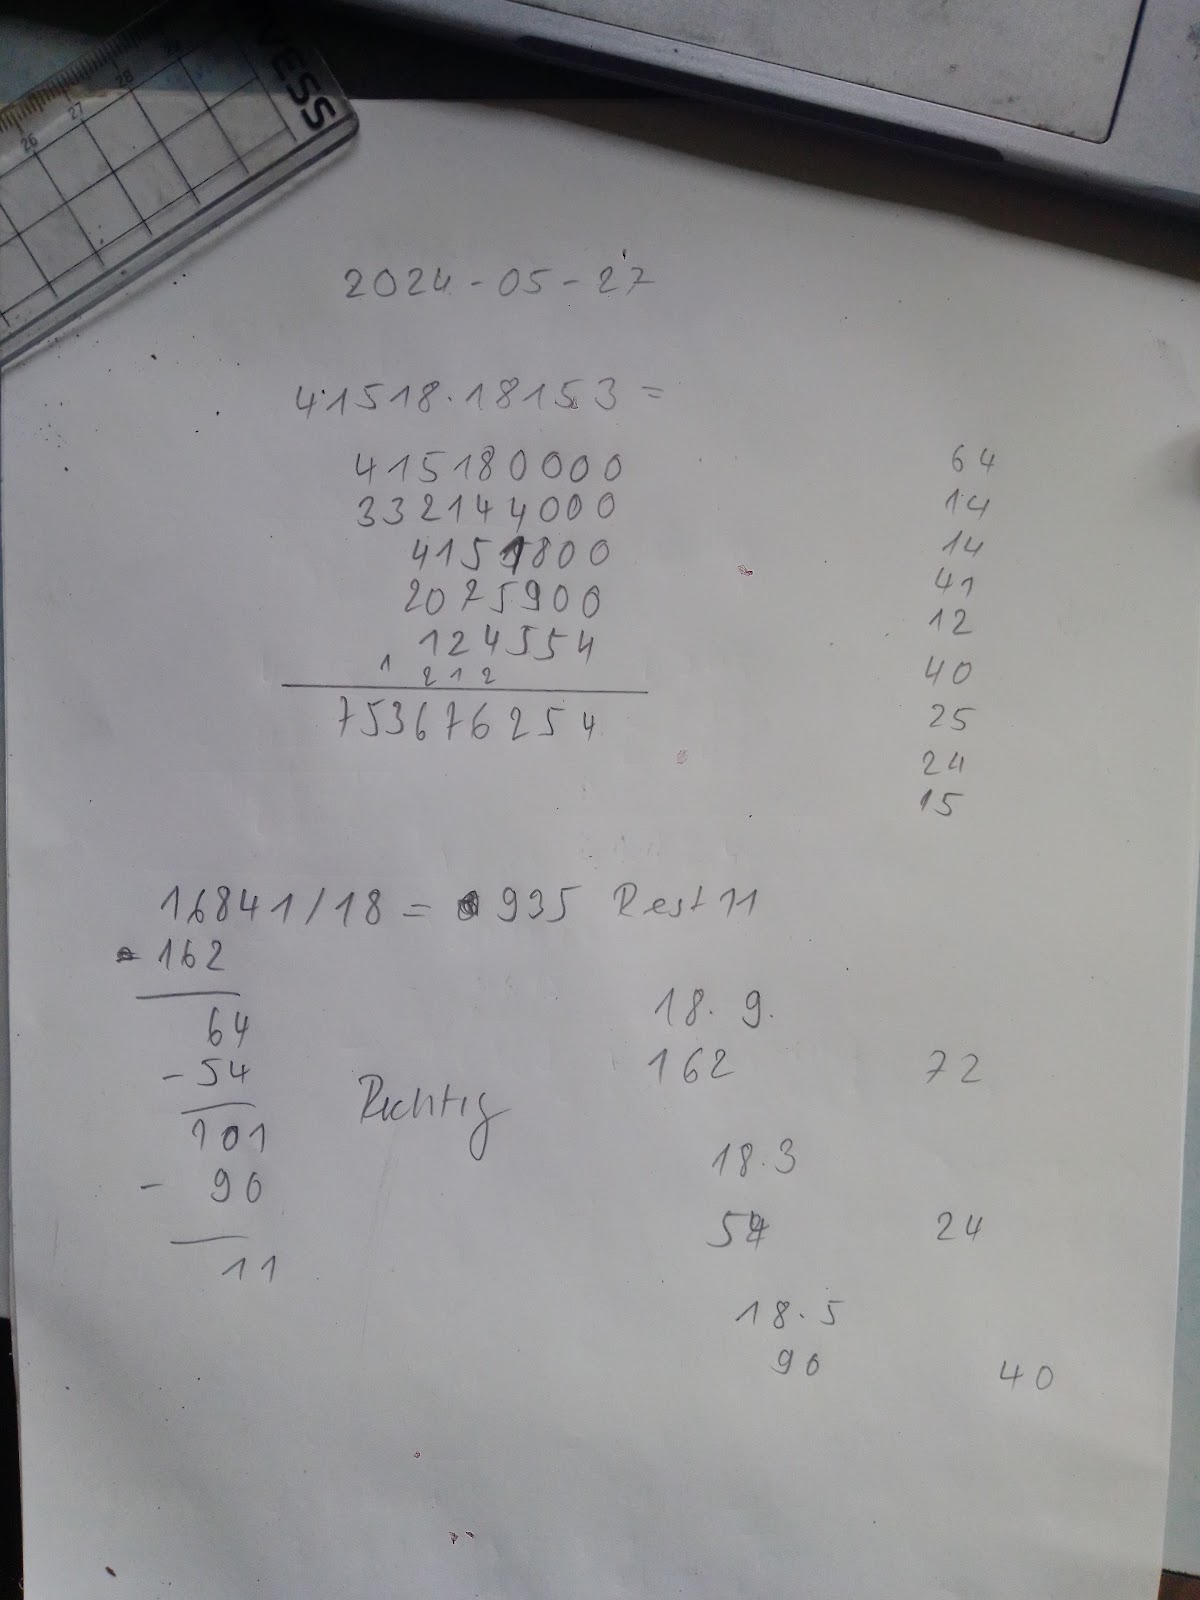 26 27 28
VESS
2024-05-27
41518·18153=
415180000
332144000
4151800
2075900
124554
1 212
753676254
64
14
14
41
12
40
25
24
15
16841/18= 935 Rest 11
-162
64
-54
101
- 90
11
Richtig
18· 9.
162 72
18·3
54 24
18·5
90 40